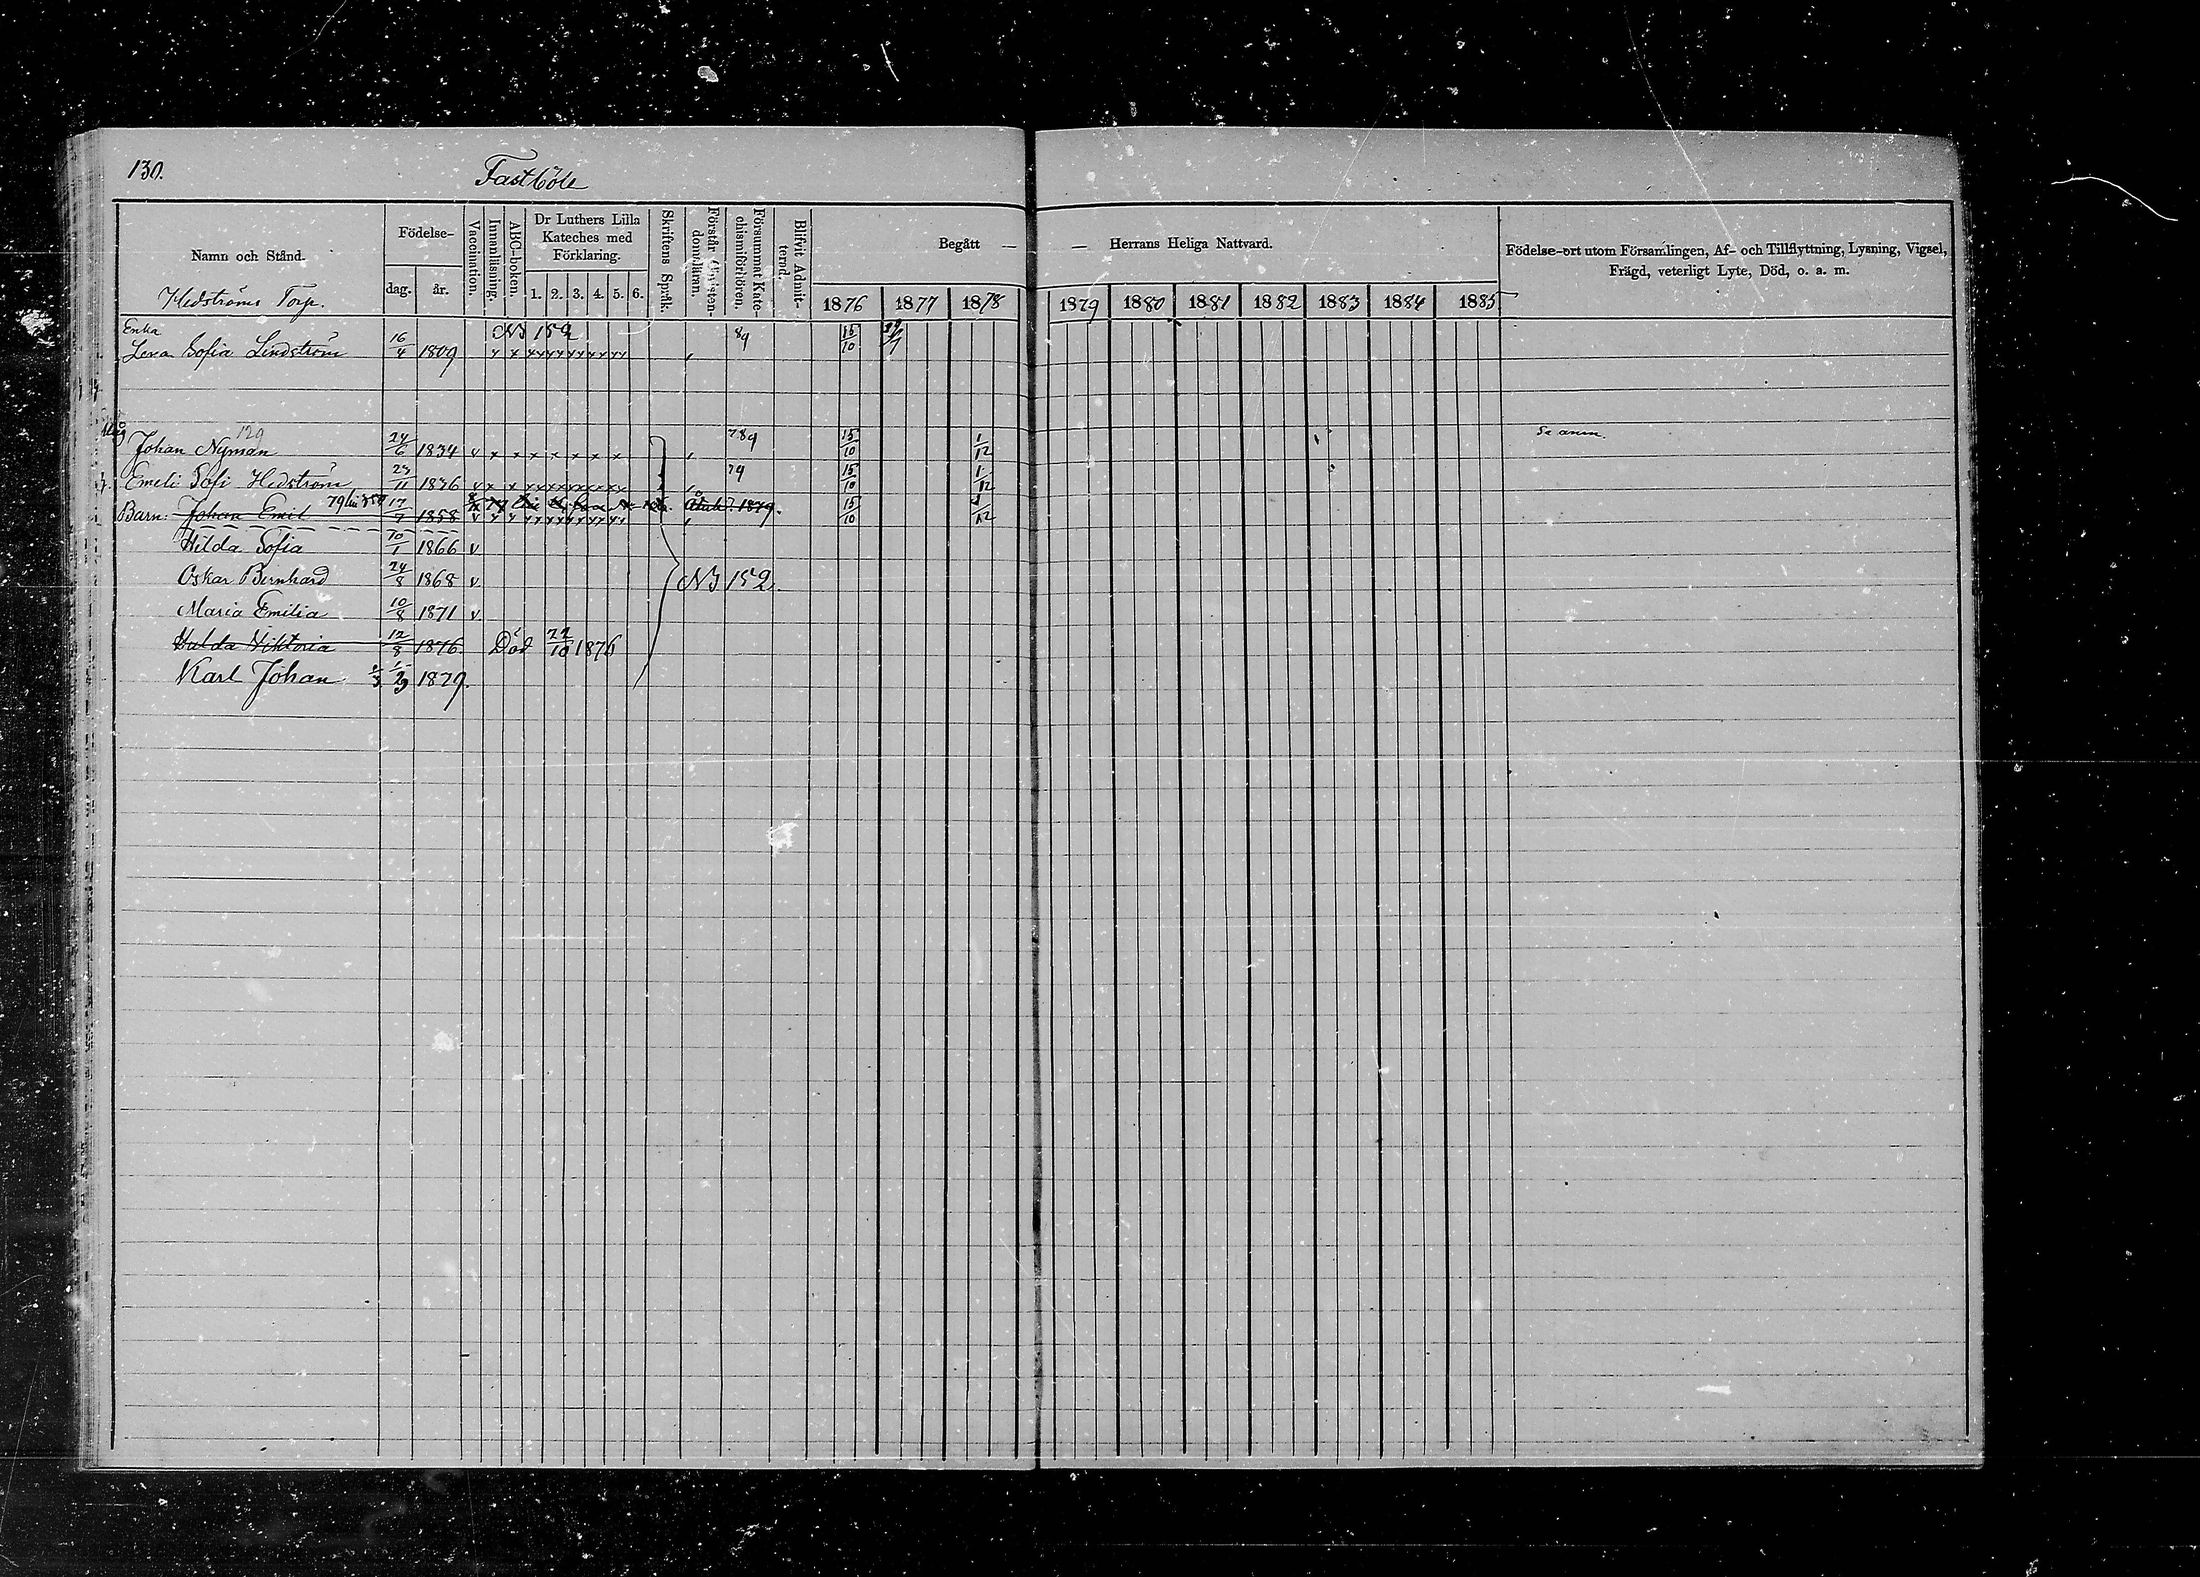 130.
Fastböle
Namn och Stånd.
Hedströms Torp.
Födelse-
dag.
år.
Vaccination.
Innanläsning.
ABC-boken.
Dr Luthers Lilla
Kateches med
Förklaring.
1. 2. 3. 4. 5. 6.
Skriftens Språk.
Förstår Christen-
domsläran.
Försummat Kate-
chismiförhören.
Blifvit Admit-
terad.
Begått — — Herrans Heliga Nattvard.
1876 1877 1878 1879 1880 1881 1882 1883 1884 1885
Födelse-ort utom Församlingen, Af- och Tillflyttning, Lysning, Vigsel,
Frägd, veterligt Lyte, Död, o. a. m.
Enka
Lena Sofia Lindström 16/4 1809 x x x x x x x x x x 89 15/10
129
Johan Nyman 24/6 1834 v x x x x x x x 789 15/10 1/12
Emeli Sofi Hedström 1836 v x x x x x x x x 79 15/10 1/12
Barn: Johan Emil 17/7 1858 1879. 15/10 1/12
Hilda Sofia 1866 v
Oskar Bernhard 24/8 1868 v NB 152.
Maria Emilia 10/8 1871 v
Hulda Viktoria 12/8 1876. Död 22/10 1876
Karl Johan 1879.